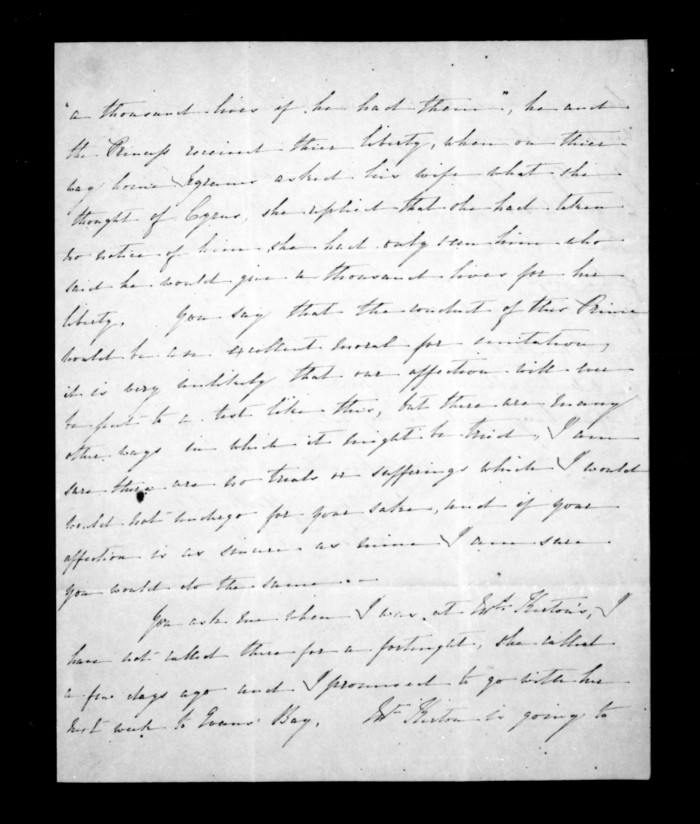 "a thousand lives if he had them", he and
the Princess received thier liberty, when on thier
way home Tigranes asked his wife what she
thought of Cyrus, she replied that she had taken
no notice of him she had only seen him who
said he would give a thousand lives for her
liberty. You say that the conduct of this Prince
would be an excellent moral for imitation,
it is very unlikely that our affection will ever
be put to a test like this, but there are many
other ways in which it might be tried, I am
sure there are no trials or sufferings which I would
would not undergo for your sake, and if your
affection is as sincere as mine I am sure
you would do the same. --
You ask me when I was at Mrs Kirton's, I
have not called there for a fortnight, she called
a few days ago and I promised to go with her
next week to Evans Bay. Mr Kirton is going to